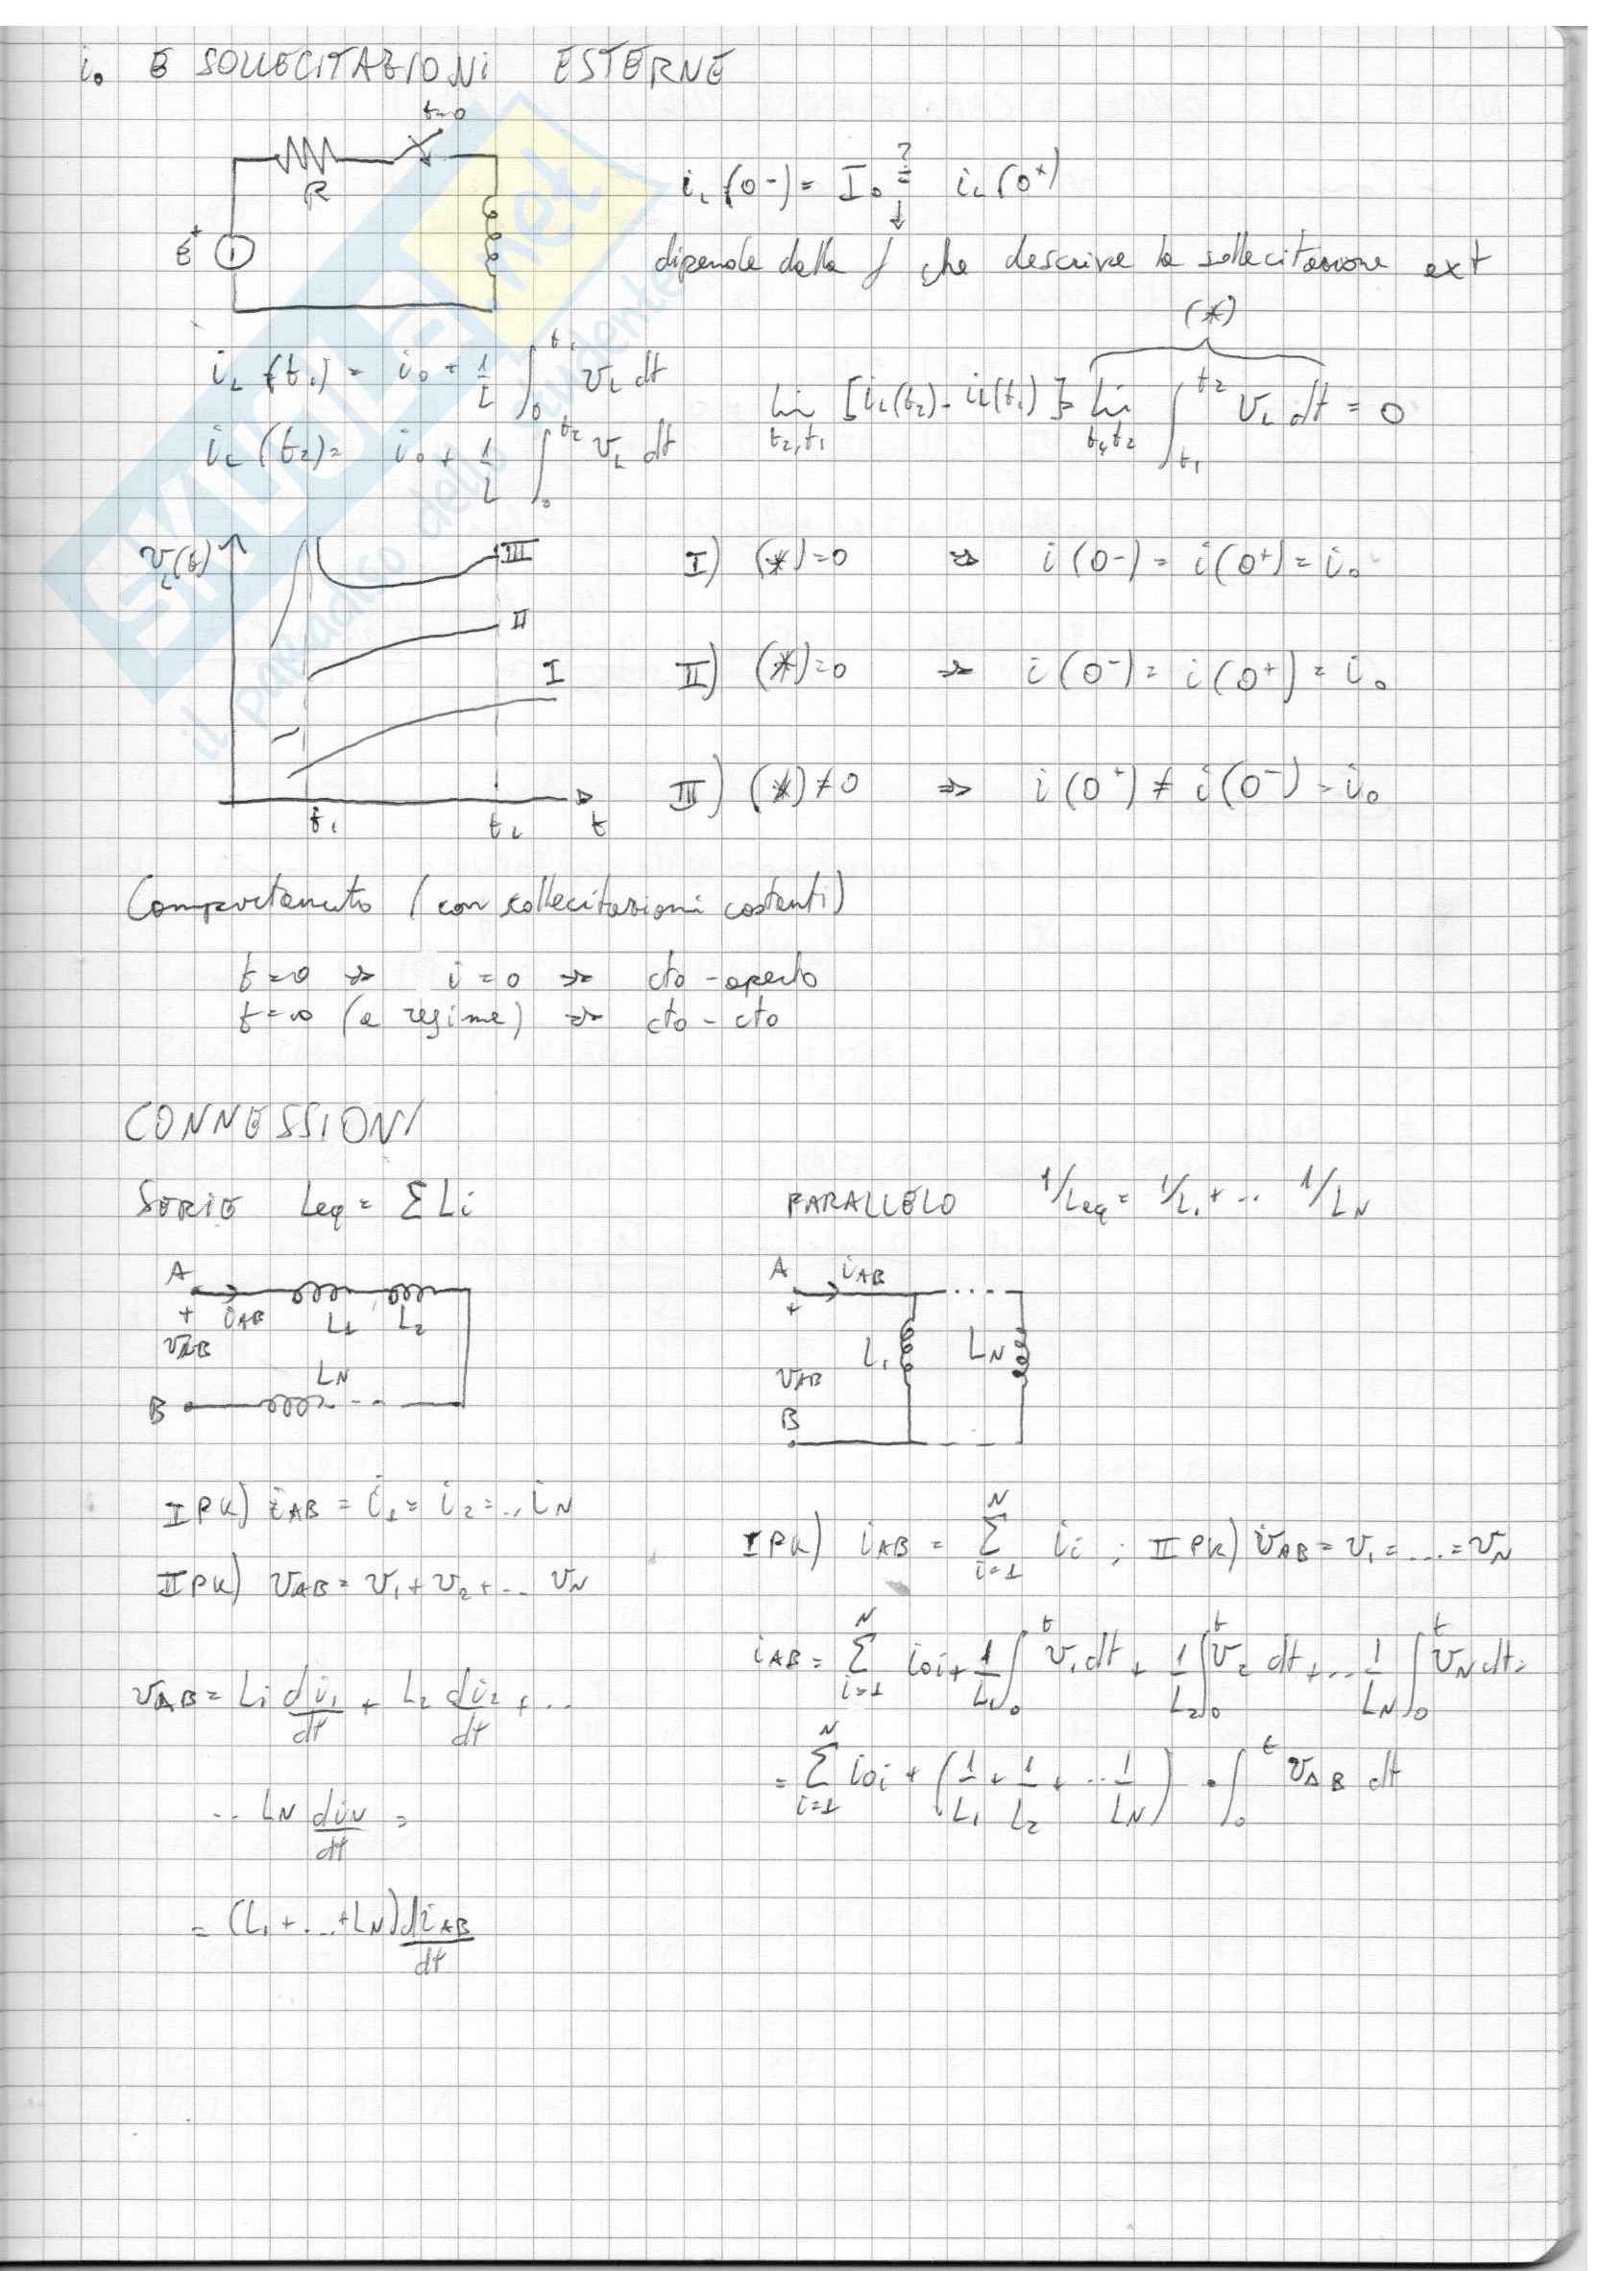 i₀ E SOLLECITAZIONI ESTERNE
t=0
R
E
+
i_L(0⁻) = I₀ ≟ i_L(0⁺)
↓
dipende dalla f che descrive la sollecitazione ext
(*)
i_L(t₁) = i₀ + 1/L ∫₀^t₁ v_L dt
lim t₂,t₁ [i_L(t₂) - i_L(t₁)] = lim t₁,t₂ ∫_t₁^t₂ v_L dt = 0
i_L(t₂) = i₀ + 1/L ∫₀^t₂ v_L dt
v_L(t)
III
II
I
t₁
t₂
t
I) (*) = 0 ⇒ i(0⁻) = i(0⁺) = i₀
II) (*) = 0 ⇒ i(0⁻) = i(0⁺) = i₀
III) (*) ≠ 0 ⇒ i(0⁺) ≠ i(0⁻) = i₀
Comportamento (con sollecitazioni costanti)
t=0 ⇒ i=0 ⇒ cto-aperto
t=∞ (a regime) ⇒ cto-cto
CONNESSIONI
SERIE Leq = Σ Li
PARALLELO 1/Leq = 1/L₁ + .. 1/L_N
A
+
i_AB
L1
L2
v_AB
L_N
B
A
i_AB
+
L₁
L_N
v_AB
B
I PK) i_AB = i₁ = i₂ = .. i_N
II PK) v_AB = v₁ + v₂ + ... v_N
v_AB = L₁ di₁/dt + L₂ di₂/dt + ...
.. L_N di_N/dt =
= (L₁ + ... + L_N) di_AB/dt
I PK) i_AB = Σ_{i=1}^N i_i ; II PK) v_AB = v₁ = .... = v_N
i_AB = Σ_{i=1}^N i₀i + 1/L₁ ∫₀^t v₁ dt + 1/L₂ ∫₀^t v₂ dt + ... 1/L_N ∫₀^t v_N dt =
= Σ_{i=1}^N i₀i + (1/L₁ + 1/L₂ + .. 1/L_N) · ∫₀^t v_AB dt
SKUOLA.net
il paradiso dello studente